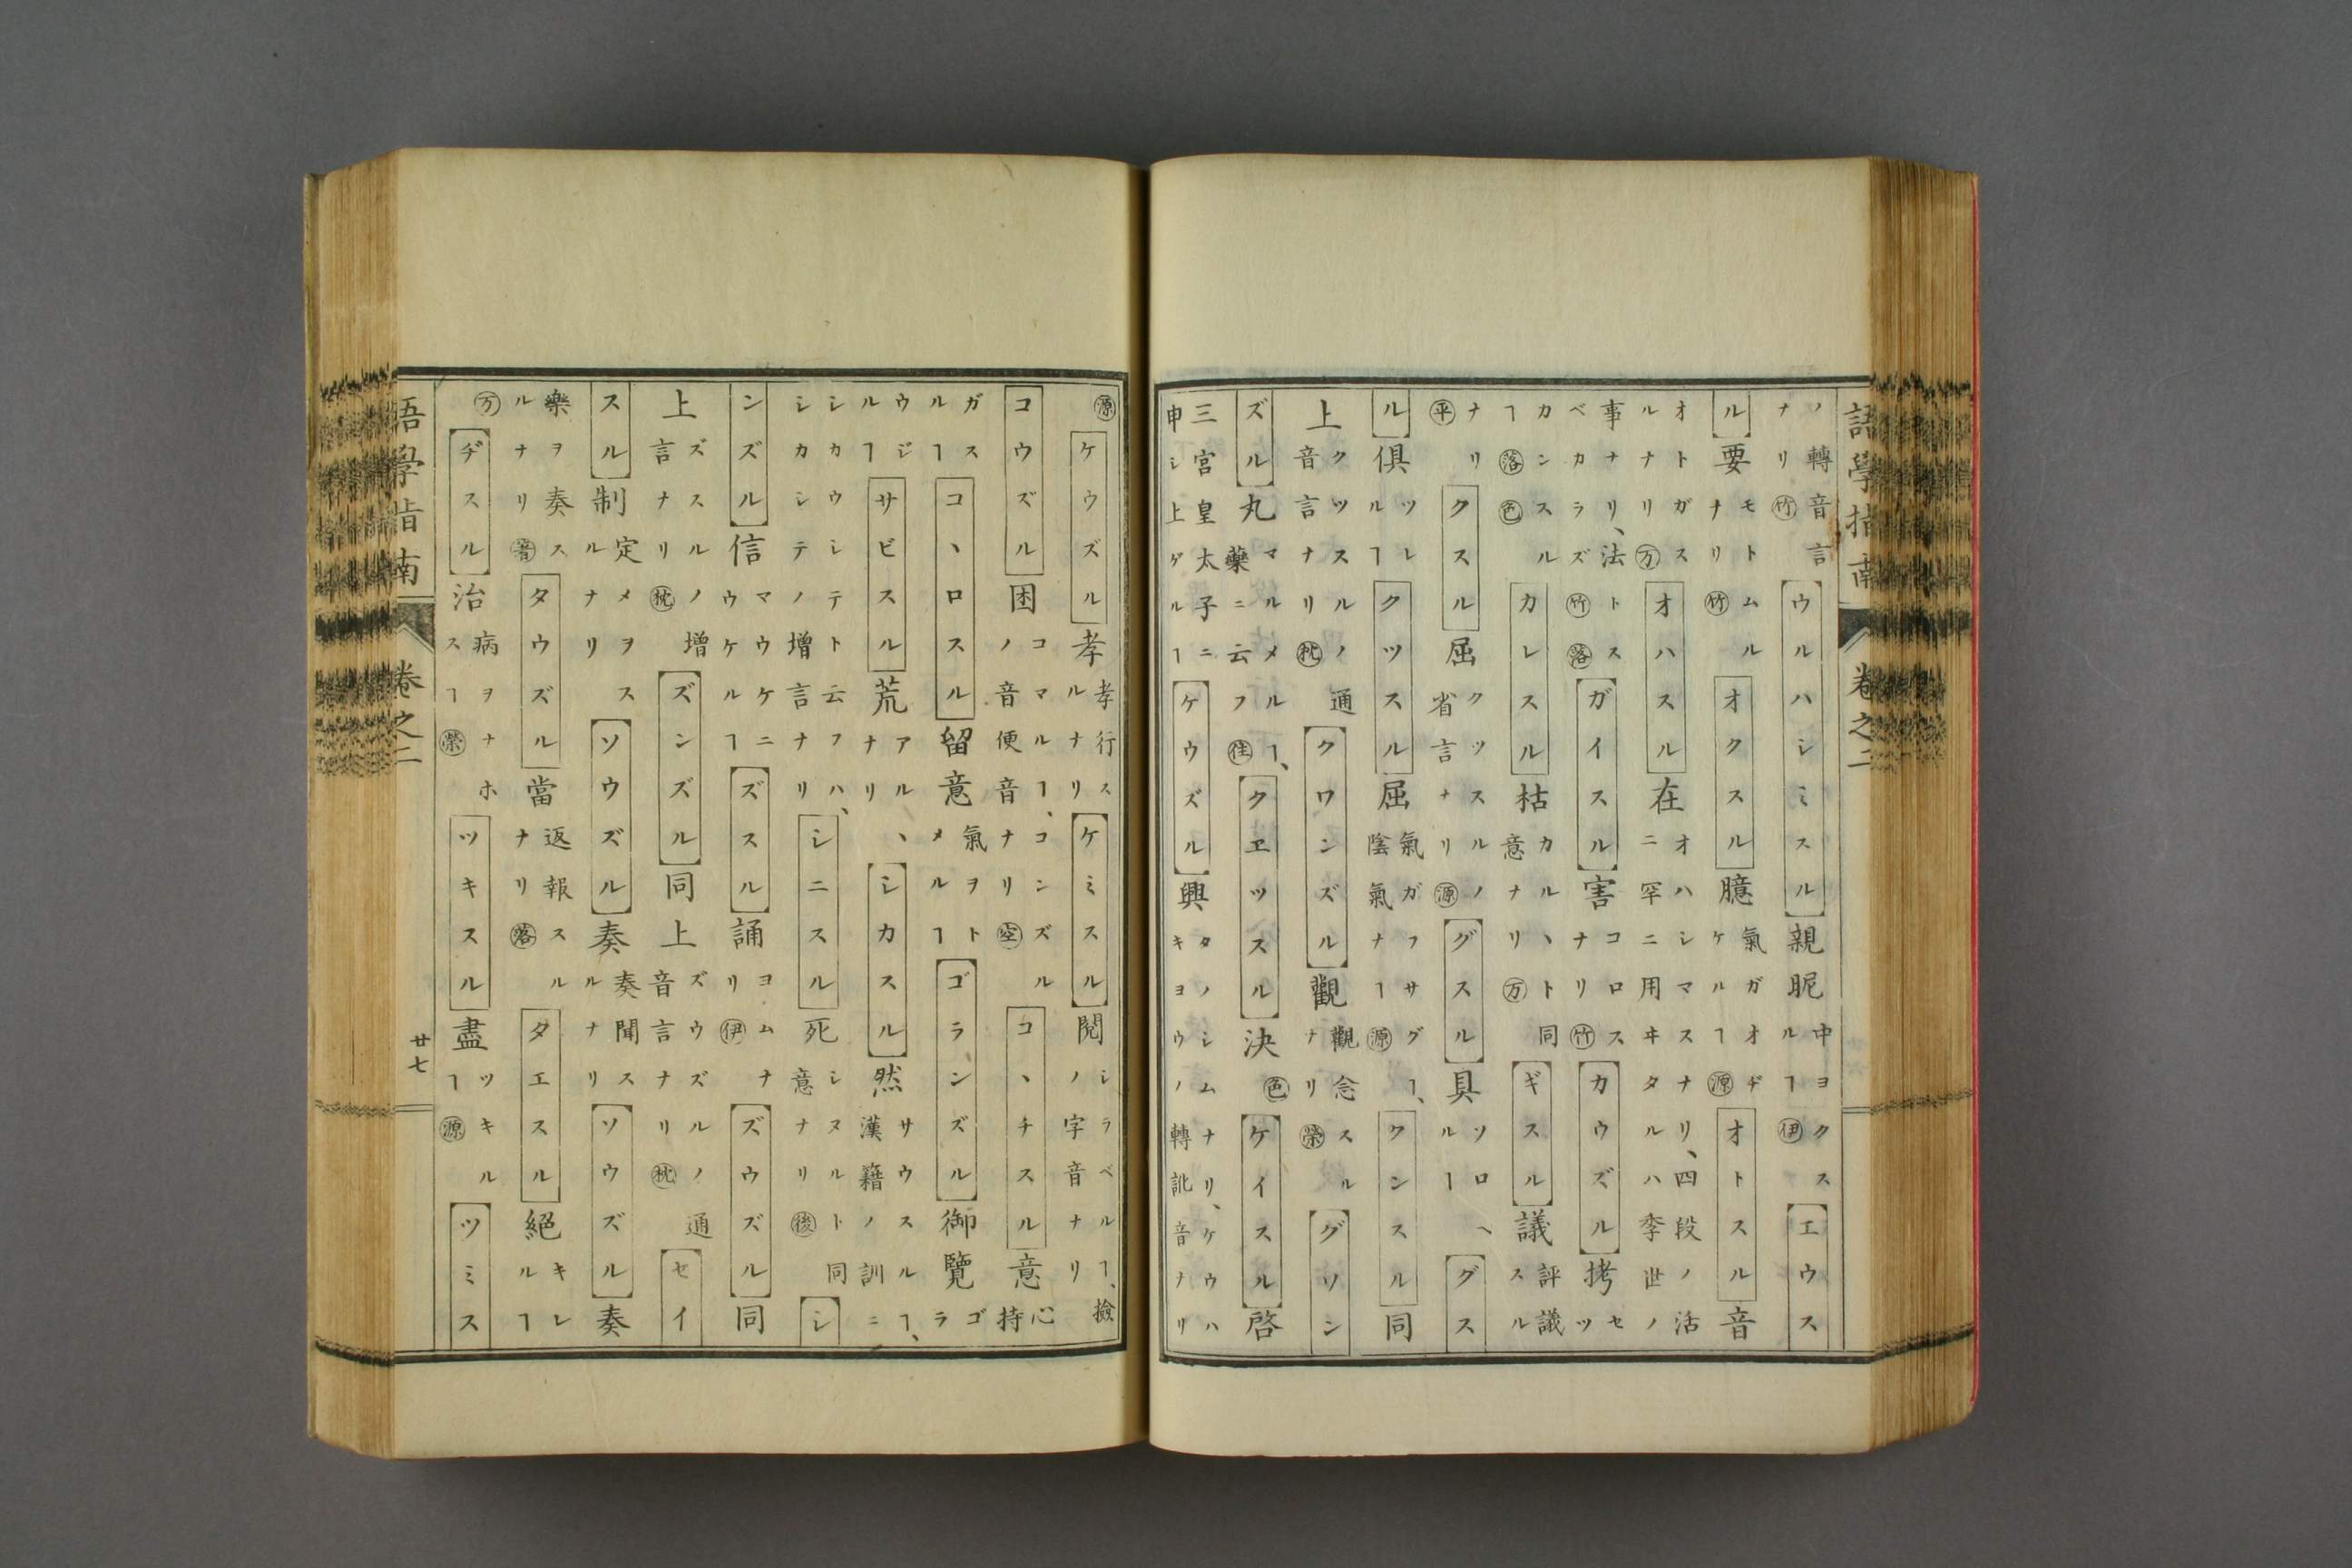 語學指南 卷之二
ノ轉音言ナリ竹ウルハシミスル親昵中ヨクスルヿ伊エウス
ル要モトムルナリ竹オクスル臆氣ガオヂケルヿ源オトスル音
オトガスルナリ万オハスル在オハシマスナリ、四段ノ活ニ罕ニ用ヰタルハ李世ノ
事ナリ、法トスベカラズ竹落ガイスル害コロスナリ竹カウズル拷セツ
カンスルヿ落色カレスル枯カルヽト同意ナリ万ギスル議評議スル
ナリ平クスル屈クツスルノ省言ナリ源グスル具ソロヘルヿグス
ル倶ツレルヿクツスル屈氣ガフサグヿ、陰氣ナヿ源クンスル同
上クツスルノ通音言ナリ枕クワンズル觀觀念スルナリ榮グソン
ズル丸マルメルヿ、藥ニ云フ住クヱツスル決色ケイスル啓
三宮皇太子ニ申シ上ゲルヿケウズル興タノシムナリ、ケウハキヨウノ轉訛音ナリ
源ケウズル孝孝行スルナリケミスル閲シラベルヿ、撿ノ字音ナリ
コウズル困コマルヿ、コンズルノ音便音ナリ空コヽチスル意心持
ガスルヿコヽロスル留意氣ヲトメルヿゴランズル御覽ゴラ
ウジルヿサビスル荒アルヽナリシカスル然サウスルヿ、漢籍ノ訓ニ
シカウシテト云フハ、シカシテノ増言ナリシニスル死シヌルト同意ナリ後シ
ンズル信マウケニウケルヿズスル誦ヨムナリ伊ズウズル同
上ズスルノ増言ナリ枕ズンズル同上ズウズルノ通音言ナリ枕セイ
スル制定メヲスルナリソウズル奏奏聞スルナリソウズル奏
樂ヲ奏スルナリ著タウズル當返報スルナリ落タエスル絕キレルヿ
万ヂスル治病ヲナホスヿ榮ツキスル盡ツキルヿ源ツミス
語學指南 卷之二 廿七